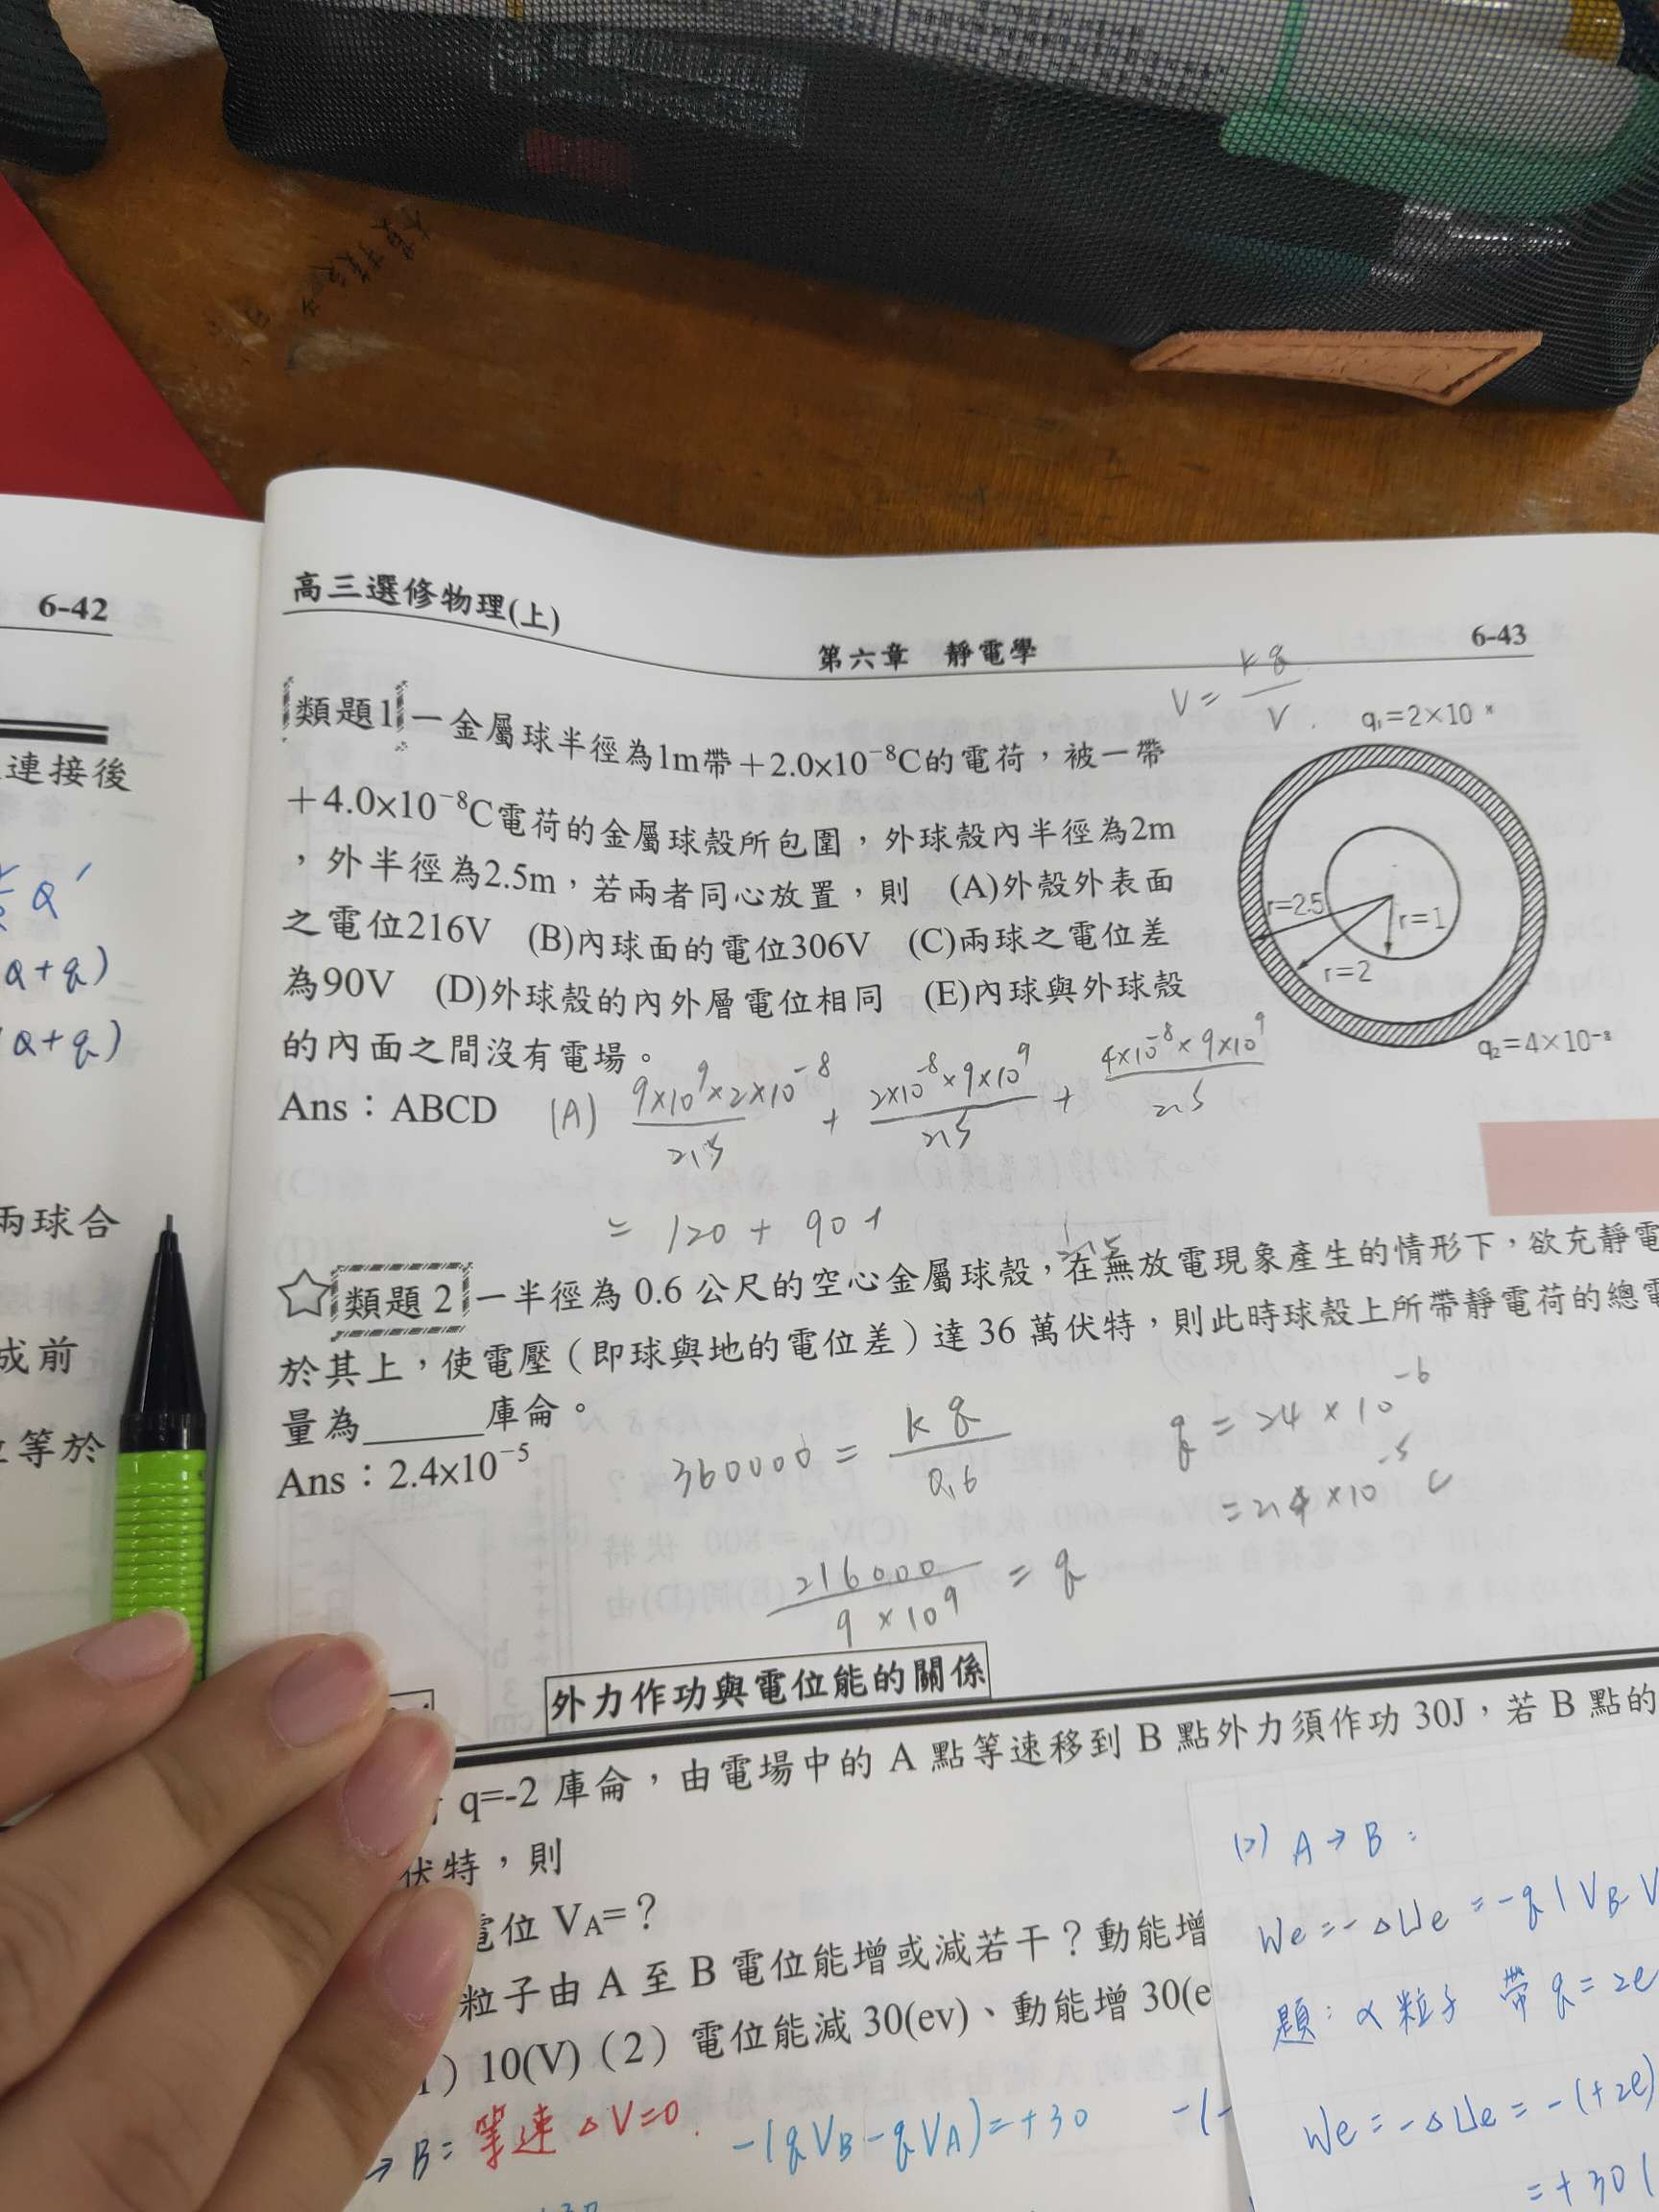 6-42
連接後
Q'
Q+q)
(Q+q)
兩球合
成前
等於
高三選修物理(上)
第六章 靜電學
6-43
類題1 一金屬球半徑為1m帶+2.0×10⁻⁸C的電荷，被一帶
+4.0×10⁻⁸C電荷的金屬球殼所包圍，外球殼內半徑為2m
，外半徑為2.5m，若兩者同心放置，則 (A)外殼外表面
之電位216V (B)內球面的電位306V (C)兩球之電位差
為90V (D)外球殼的內外層電位相同 (E)內球與外球殼
的內面之間沒有電場。
Ans：ABCD
V = kq/V
q₁=2×10
r=2.5
r=1
r=2
q₂=4×10⁻⁸
(A) 9×10⁹×2×10⁻⁸/2.5 + 2×10⁻⁸×9×10⁹/2.5 + 4×10⁻⁸×9×10⁹/2.5
= 120 + 90 +
☆類題2 一半徑為 0.6 公尺的空心金屬球殼，在無放電現象產生的情形下，欲充靜電
於其上，使電壓（即球與地的電位差）達 36 萬伏特，則此時球殼上所帶靜電荷的總電
量為______庫侖。
Ans：2.4×10⁻⁵
360000 = kq/0.6
q = 24×10⁻⁶
=2.4×10⁻⁵ C
216000/9×10⁹ = q
外力作功與電位能的關係
q=-2 庫侖，由電場中的 A 點等速移到 B 點外力須作功 30J，若 B 點的
伏特，則
電位 VA=？
粒子由 A 至 B 電位能增或減若干？動能增
1）10(V)（2）電位能減 30(ev)、動能增 30(e
→ B = 等速 ΔV=0. -(qVB-qVA)=+30
(2) A→B：
We=-ΔUe =-q(VB-V
題：α粒子 帶q=2e
We=-ΔUe=-(+2e)
=+30(